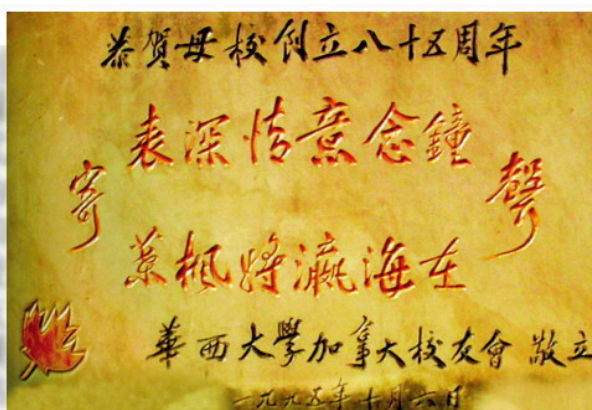 恭賀母校創立八十五周年
表深情意念鐘
寄 聲
葉楓將瀛海在
華西大學加拿大校友會 敬立
一九九五年十月六日